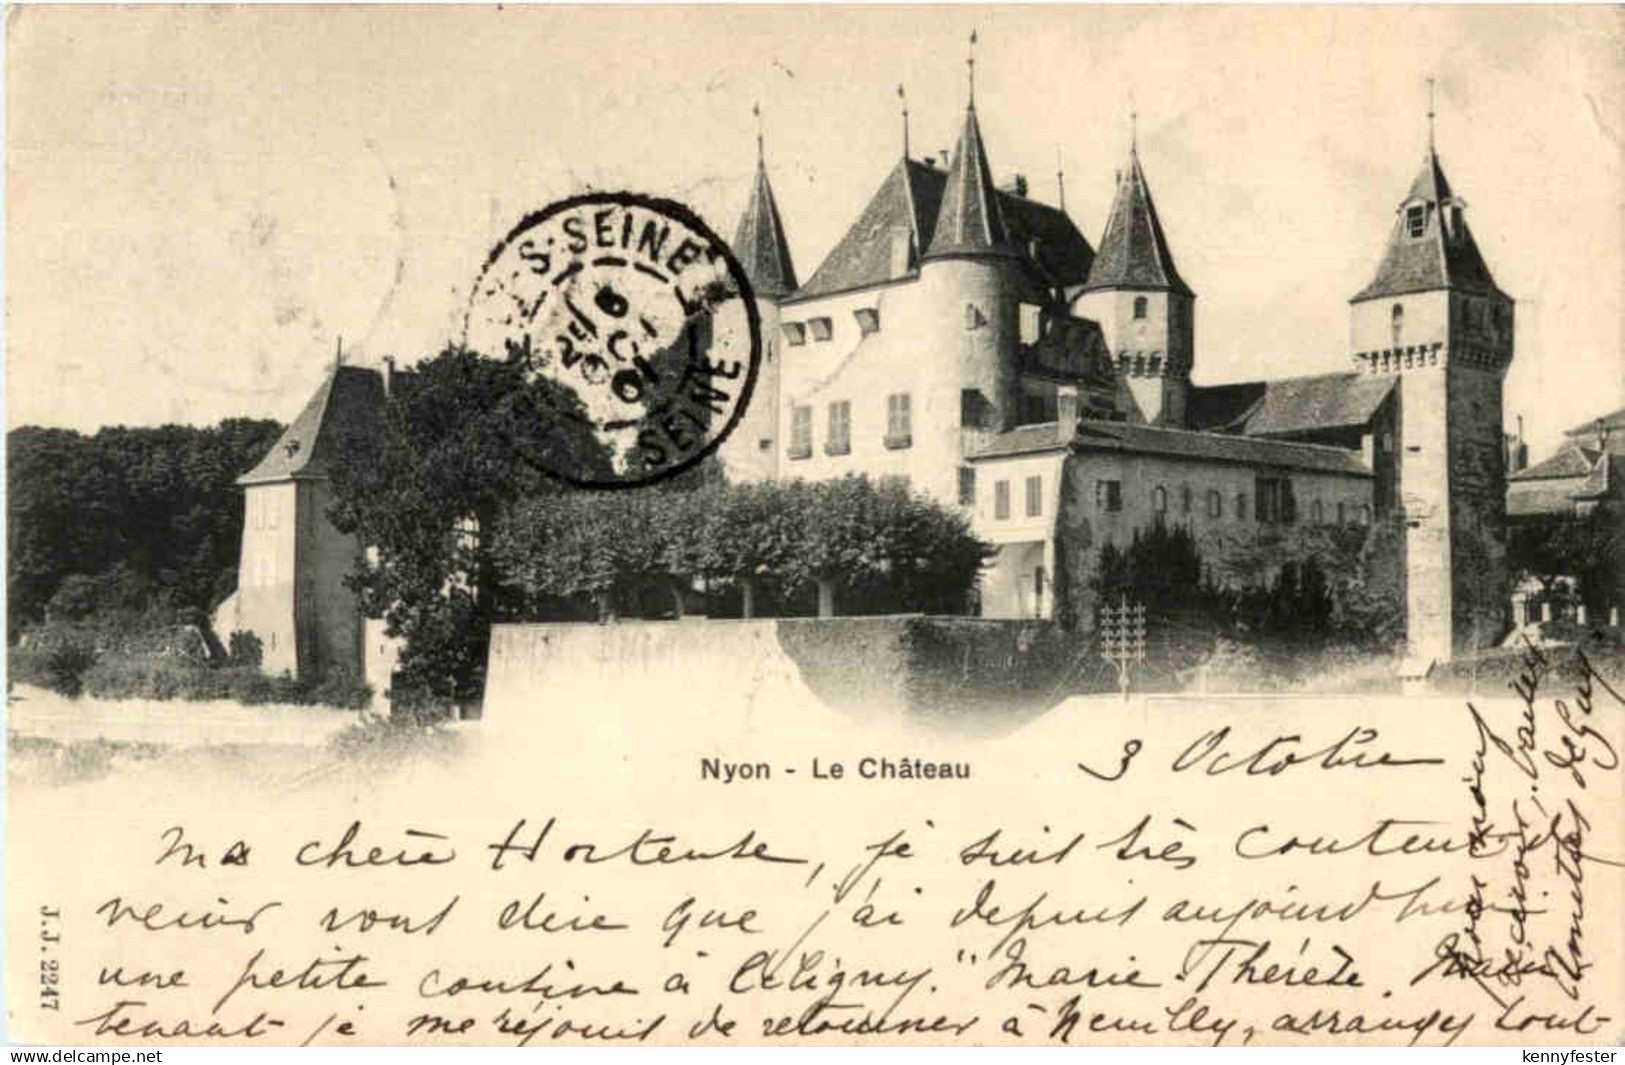 S-SEINE
6
OCT
01
SEINE
Nyon - Le Château
3 Octobre
Ma chère Hortense, je suis très contente de
venir vous dire que j'ai depuis aujourd'hui
une petite cousine à Céligny." Marie-Thérèse. Main
tenant je me réjouis de retourner à Neuilly, arrangez tout
pour nous
recevoir,
Amitiés de Guy
J.J. 2247
www.delcampe.net
kennyfester